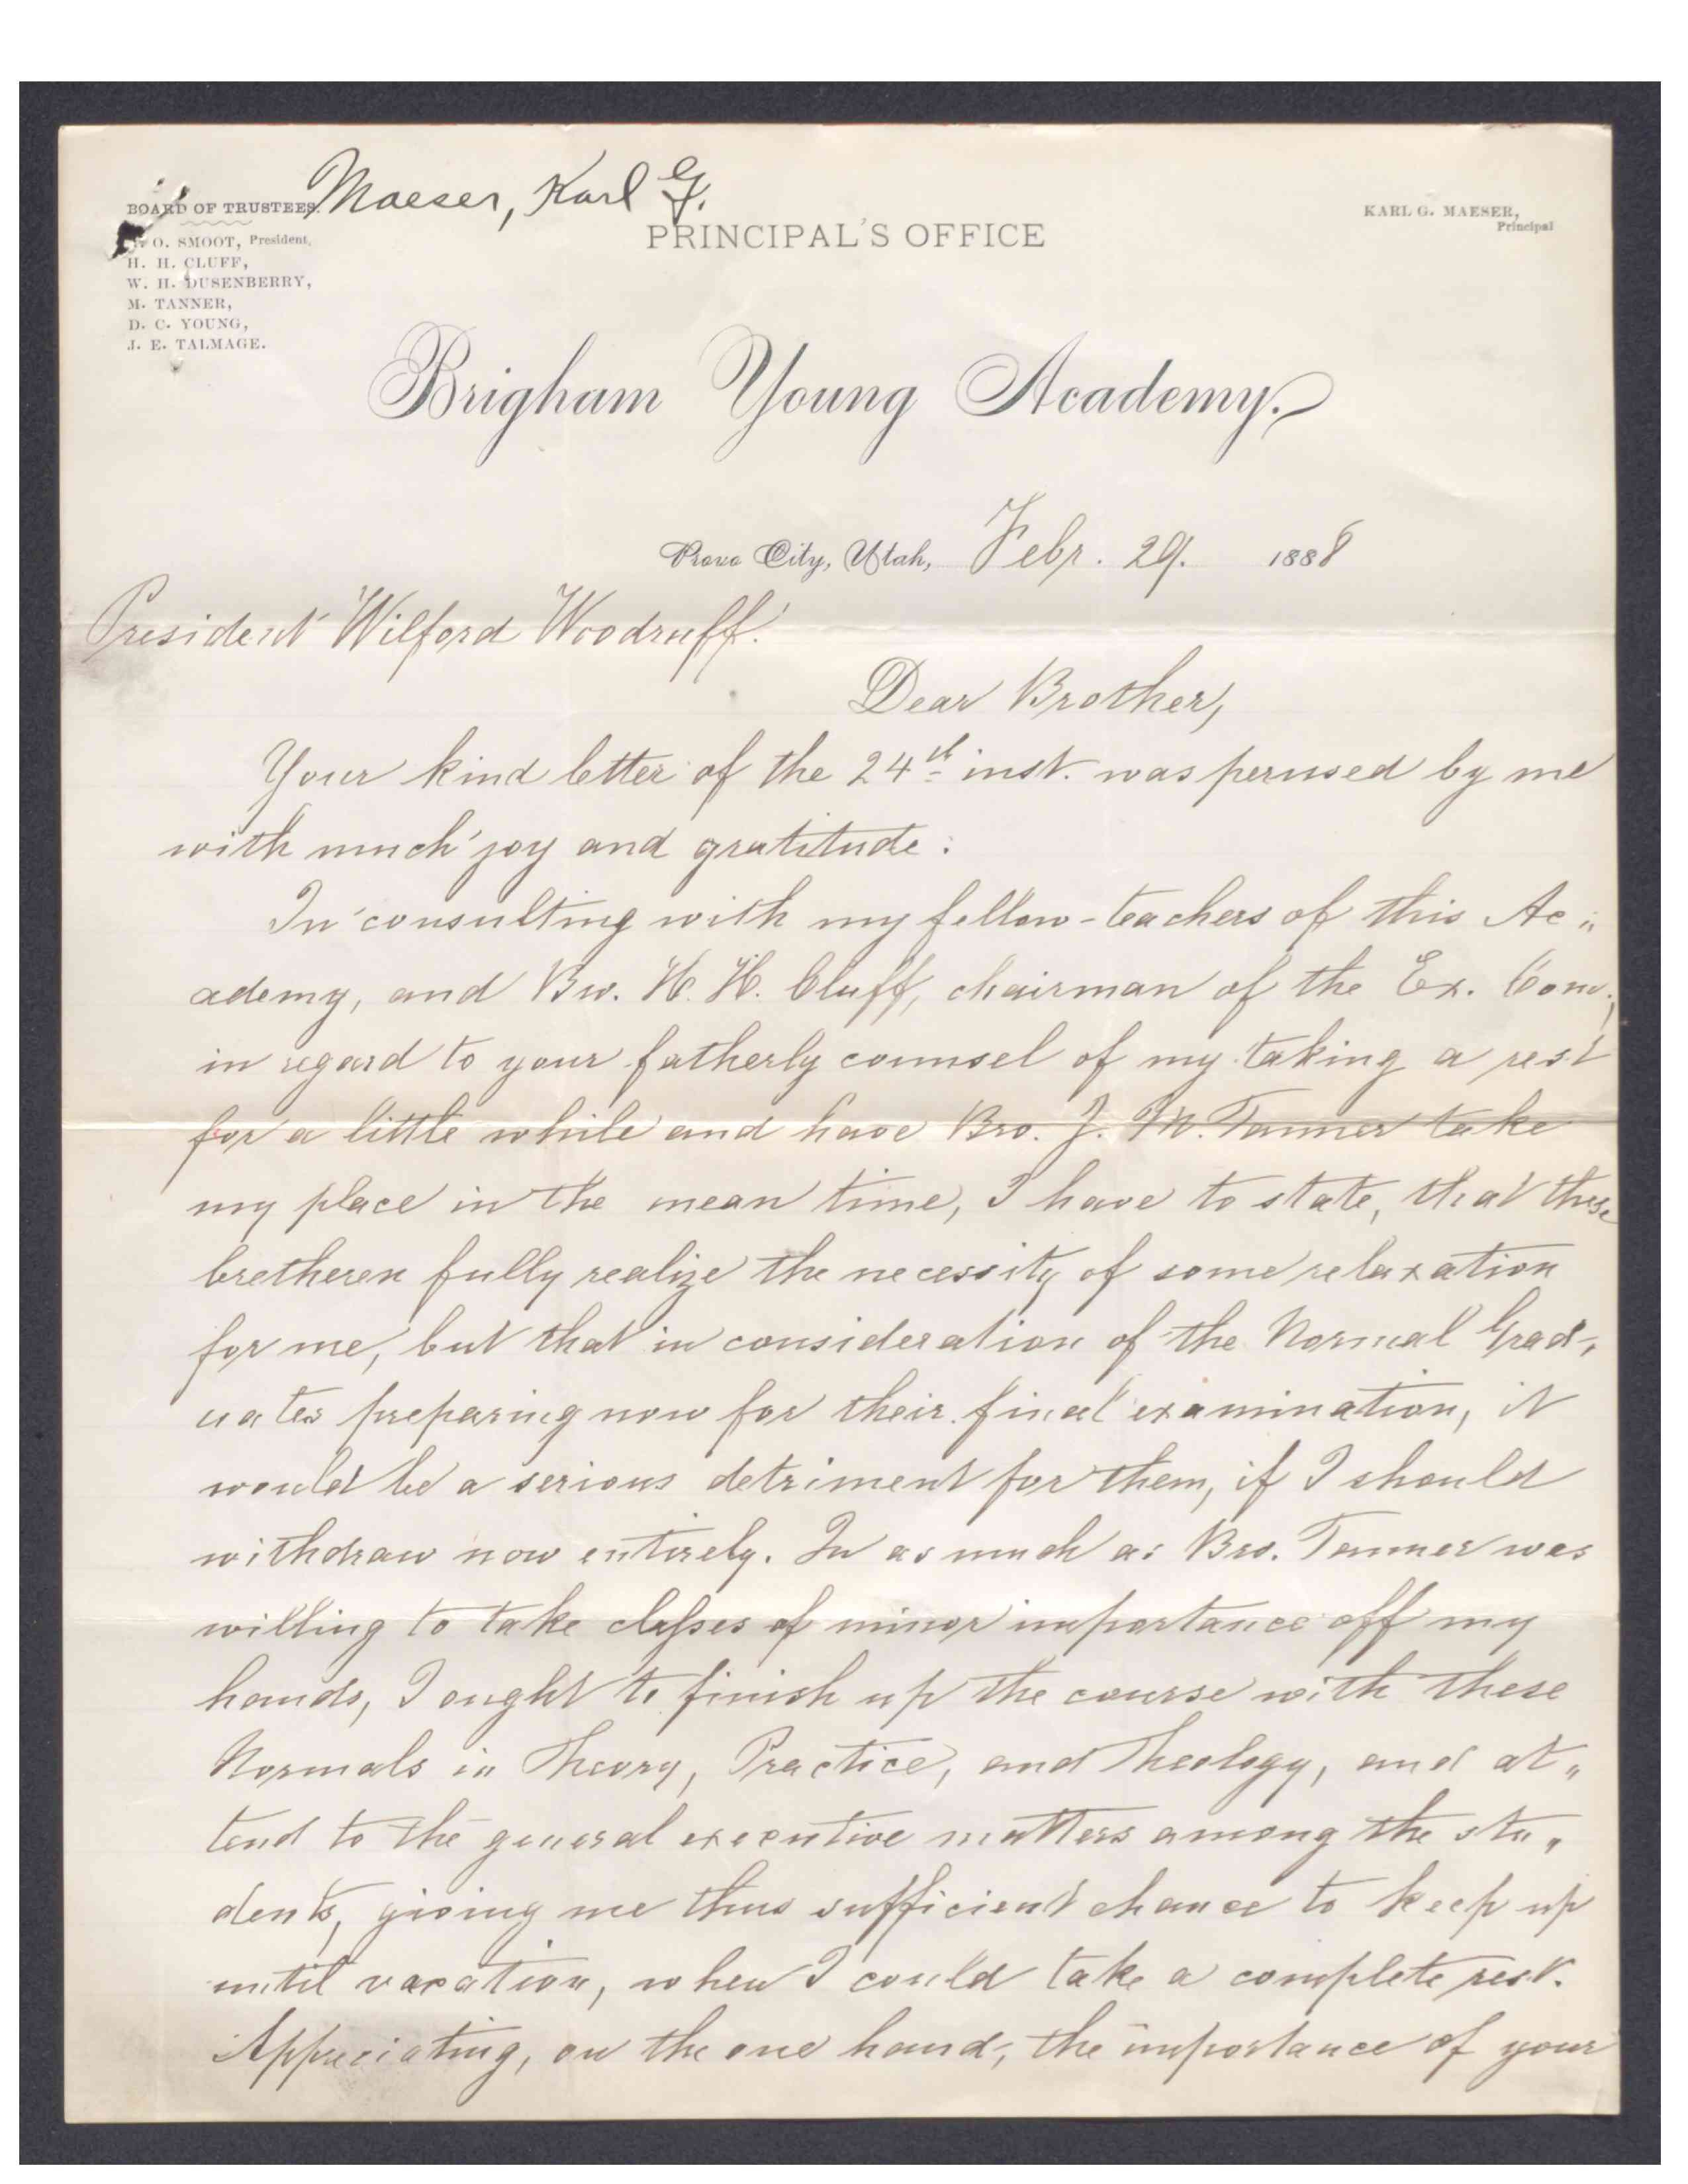 Maeser, Karl G.
BOARD OF TRUSTEES.
O. SMOOT, President,
H. H. CLUFF,
W. H. DUSENBERRY,
M. TANNER,
D. C. YOUNG,
J. E. TALMAGE.
PRINCIPAL'S OFFICE
KARL G. MAESER,
Principal
Brigham Young Academy.
Provo City, Utah, Febr. 29. 1888
President Wilford Woodruff.
Dear Brother,
Your kind letter of the 24th inst. was perused by me
with much joy and gratitude.
In consulting with my fellow-teachers of this Ac„
ademy, and Bro. H. H. Cluff, chairman of the Ex. Com.,
in regard to your fatherly counsel of my taking a rest
for a little while and have Bro. J. M. Tanner take
my place in the mean time, I have to state, that these
bretheren fully realize the necessity of some relaxation
for me, but that in consideration of the Normal Grad„
uates preparing now for their final examination, it
would be a serious detriment for them, if I should
withdraw now entirely. In as much as Bro. Tanner was
willing to take classes of minor importance off my
hands, I ought to finish up the course with these
Normals in Theory, Practice, and Theology, and at„
tend to the general executive matters among the stu„
dents, giving me thus sufficient chance to keep up
until vacation, when I could take a complete rest.
Appreciating, on the one hand, the importance of your